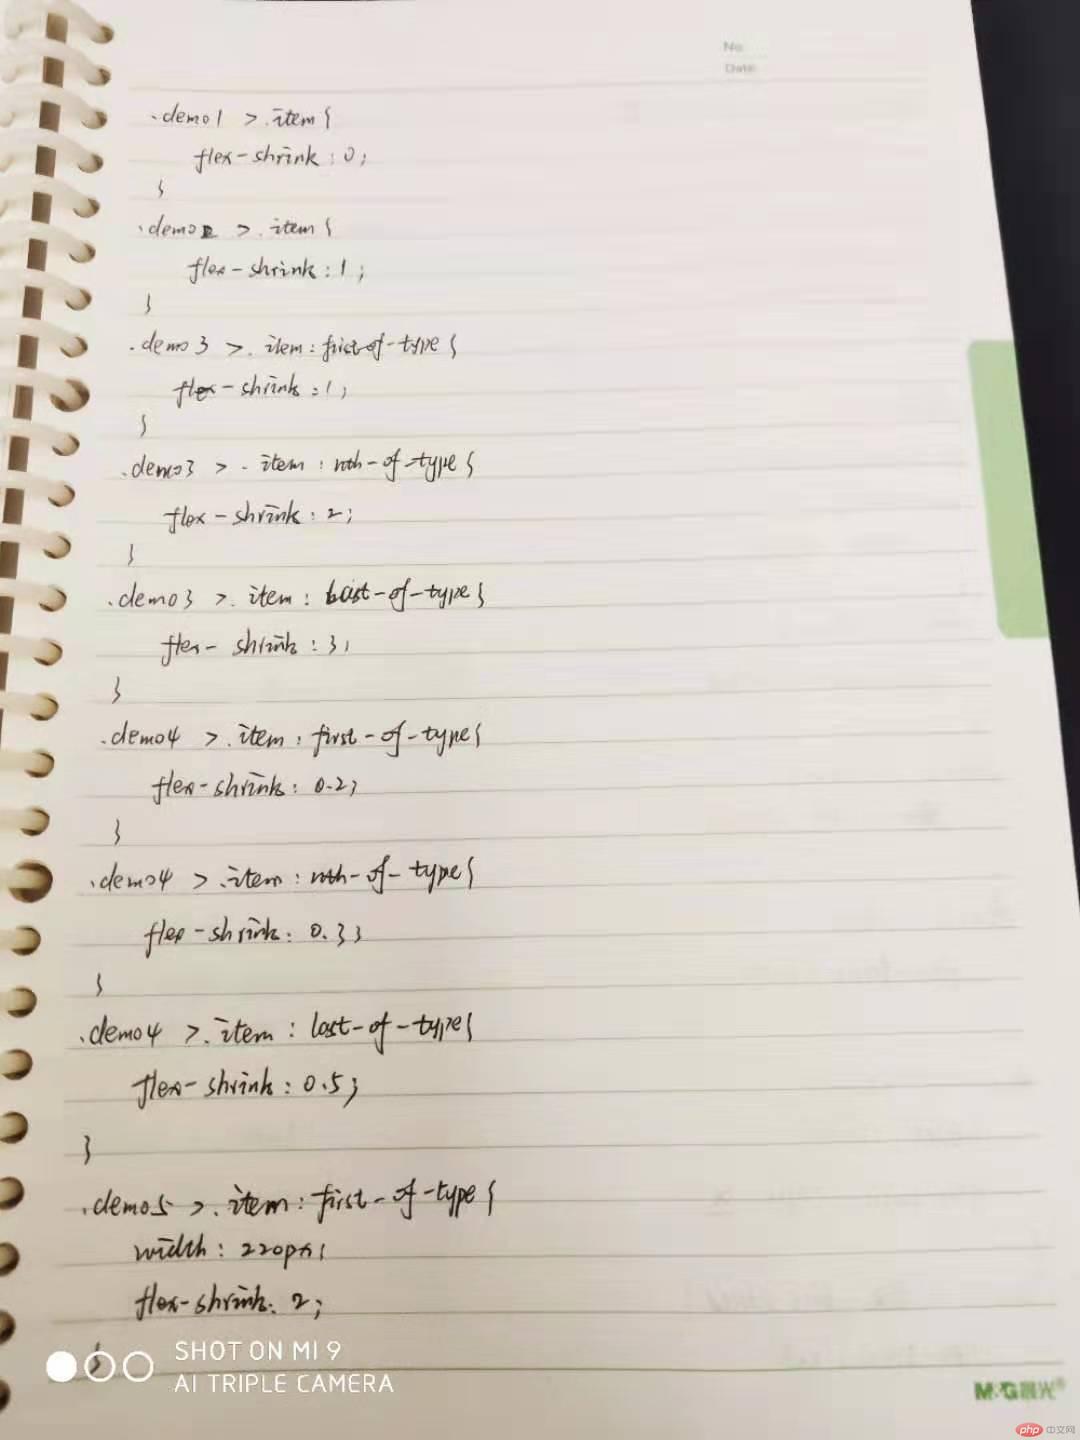 No
Date
.demo1 > .item{
flex-shrink: 0;
}
.demo2 > .item{
flex-shrink: 1;
}
.demo3 > .item:first-of-type{
flex-shrink: 1;
}
.demo3 > .item:nth-of-type{
flex-shrink: 2;
}
.demo3 > .item:last-of-type{
flex-shrink: 3;
}
.demo4 > .item:first-of-type{
flex-shrink: 0.2;
}
.demo4 > .item:nth-of-type{
flex-shrink: 0.3;
}
.demo4 > .item:last-of-type{
flex-shrink: 0.5;
}
.demo5 > .item:first-of-type{
width: 220px;
flex-shrink: 2;
}
SHOT ON MI 9
AI TRIPLE CAMERA
M&G晨光®
php中文网